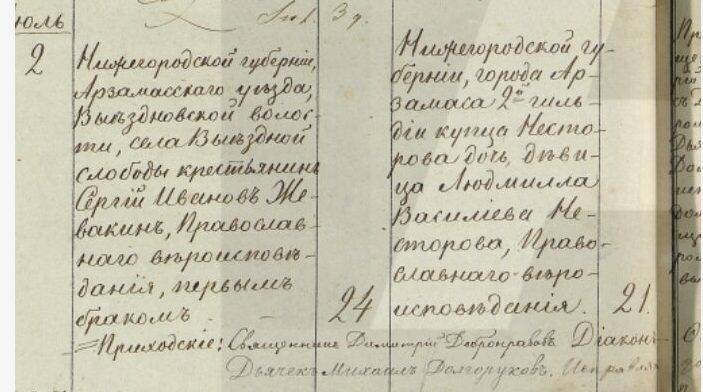 юль
2
Нижегородской губерніи,
Арзамасскаго уѣзда,
Выѣздновской волос-
ти, села Выѣздной
слободы крестьянинъ
Сергій Ивановъ Же-
вакинъ, Православ-
наго вѣроисповѣ-
данія, первымъ
бракомъ
24
Нижегородской гу-
берніи, города Ар-
замаса 2ой гиль-
діи купца Несто-
рова дочь, дѣви-
ца Людмилла
Василіева Не-
сторова, Право-
славнаго вѣро-
исповѣданія.
21.
Приходскіе: Священникъ Димитрій Добронравовъ Діаконъ
Дьячекъ Михаилъ Долгоруковъ. Исправля